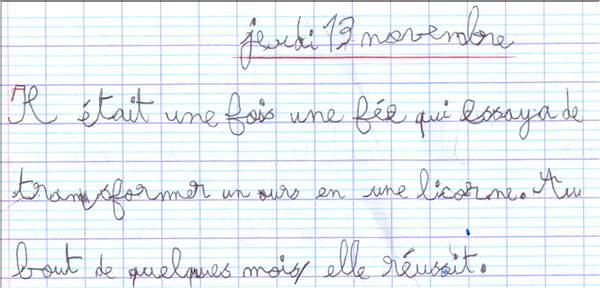 jeudi 13 novembre
Il était une fois une fée qui essaya de
transformer un ours en une licorne. Au
bout de quelques mois, elle réussit.